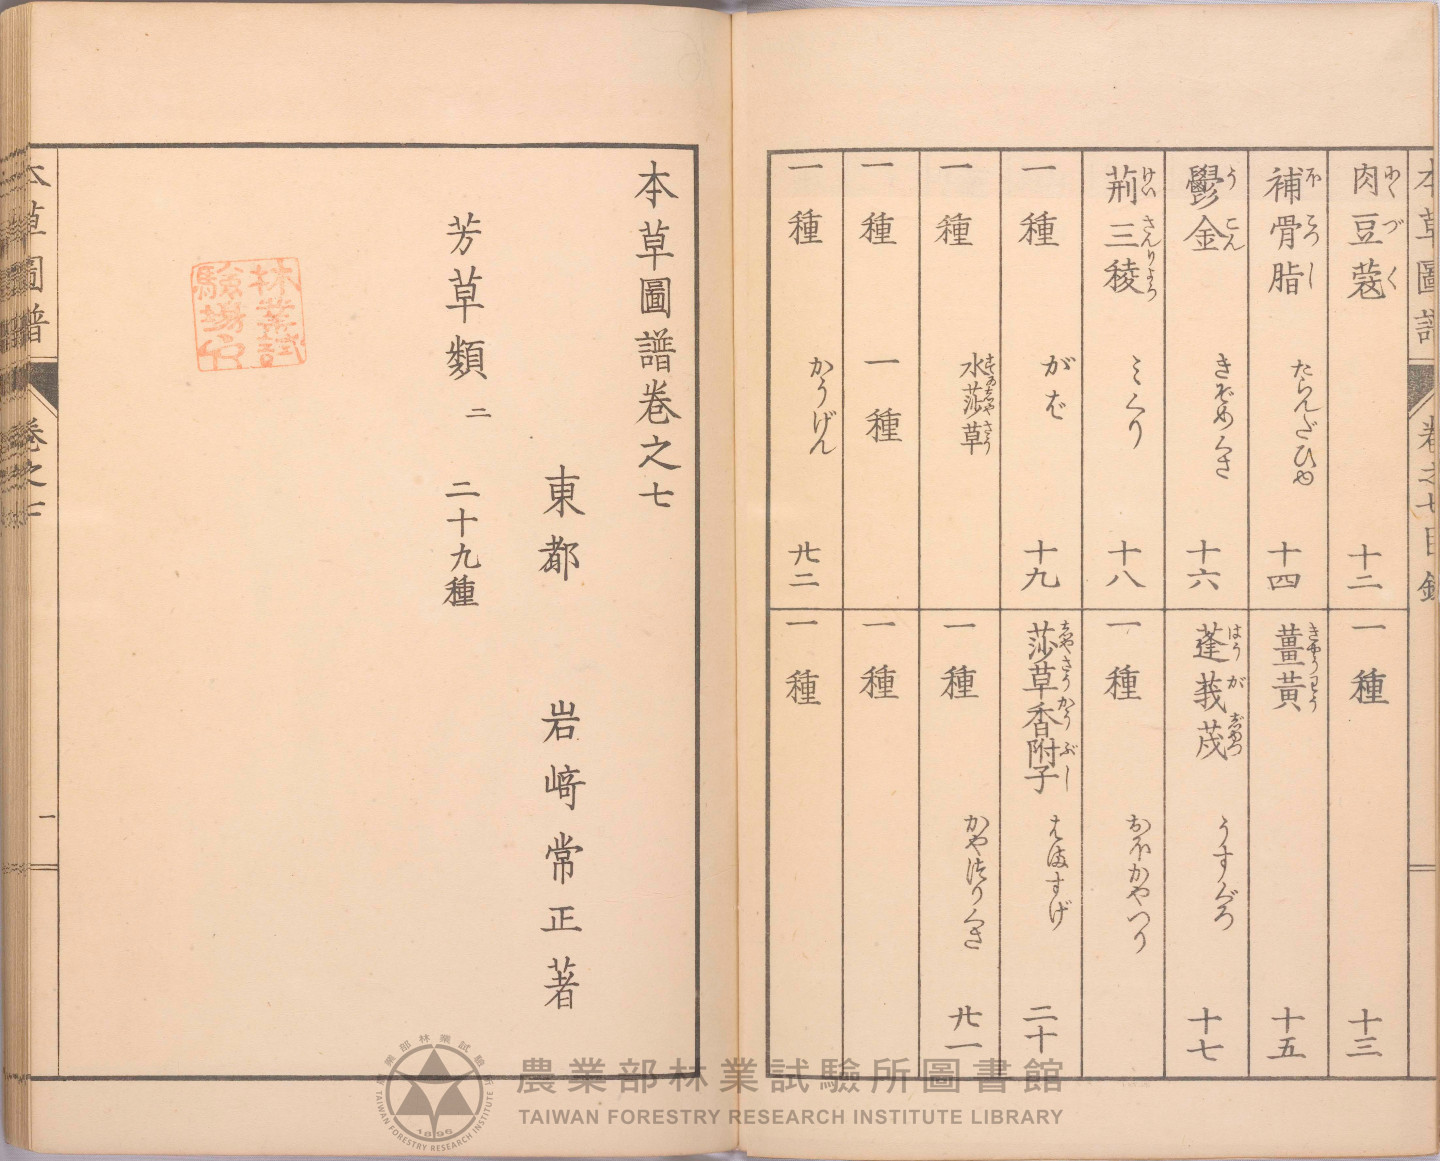 本草圖譜 卷之七目錄
肉豆蔲 にくづく 十二
一種 十三
補骨脂 ほこつし たらんだひゆ 十四
薑黃 きやうわう 十五
鬱金 うこん きぞめくさ 十六
蓬莪茂 はうがじゆつ うすぐろ 十七
荊三稜 けいさんりよう みくり 十八
一種 おほかやつり
一種 がば 十九
莎草香附子 しやさうかうぶし はますげ 二十
一種 水莎草 すゐしやさう
一種 かやつりくさ 廿一
一種 一種
一種
一種 かうげん 廿二
一種
本草圖譜卷之七
東都 岩﨑常正著
芳草類 二 二十九種
林業試驗場印
本草圖譜 卷之七 一
農業部林業試驗所圖書館
TAIWAN FORESTRY RESEARCH INSTITUTE LIBRARY
農業部林業試驗所
TAIWAN FORESTRY RESEARCH INSTITUTE
1896